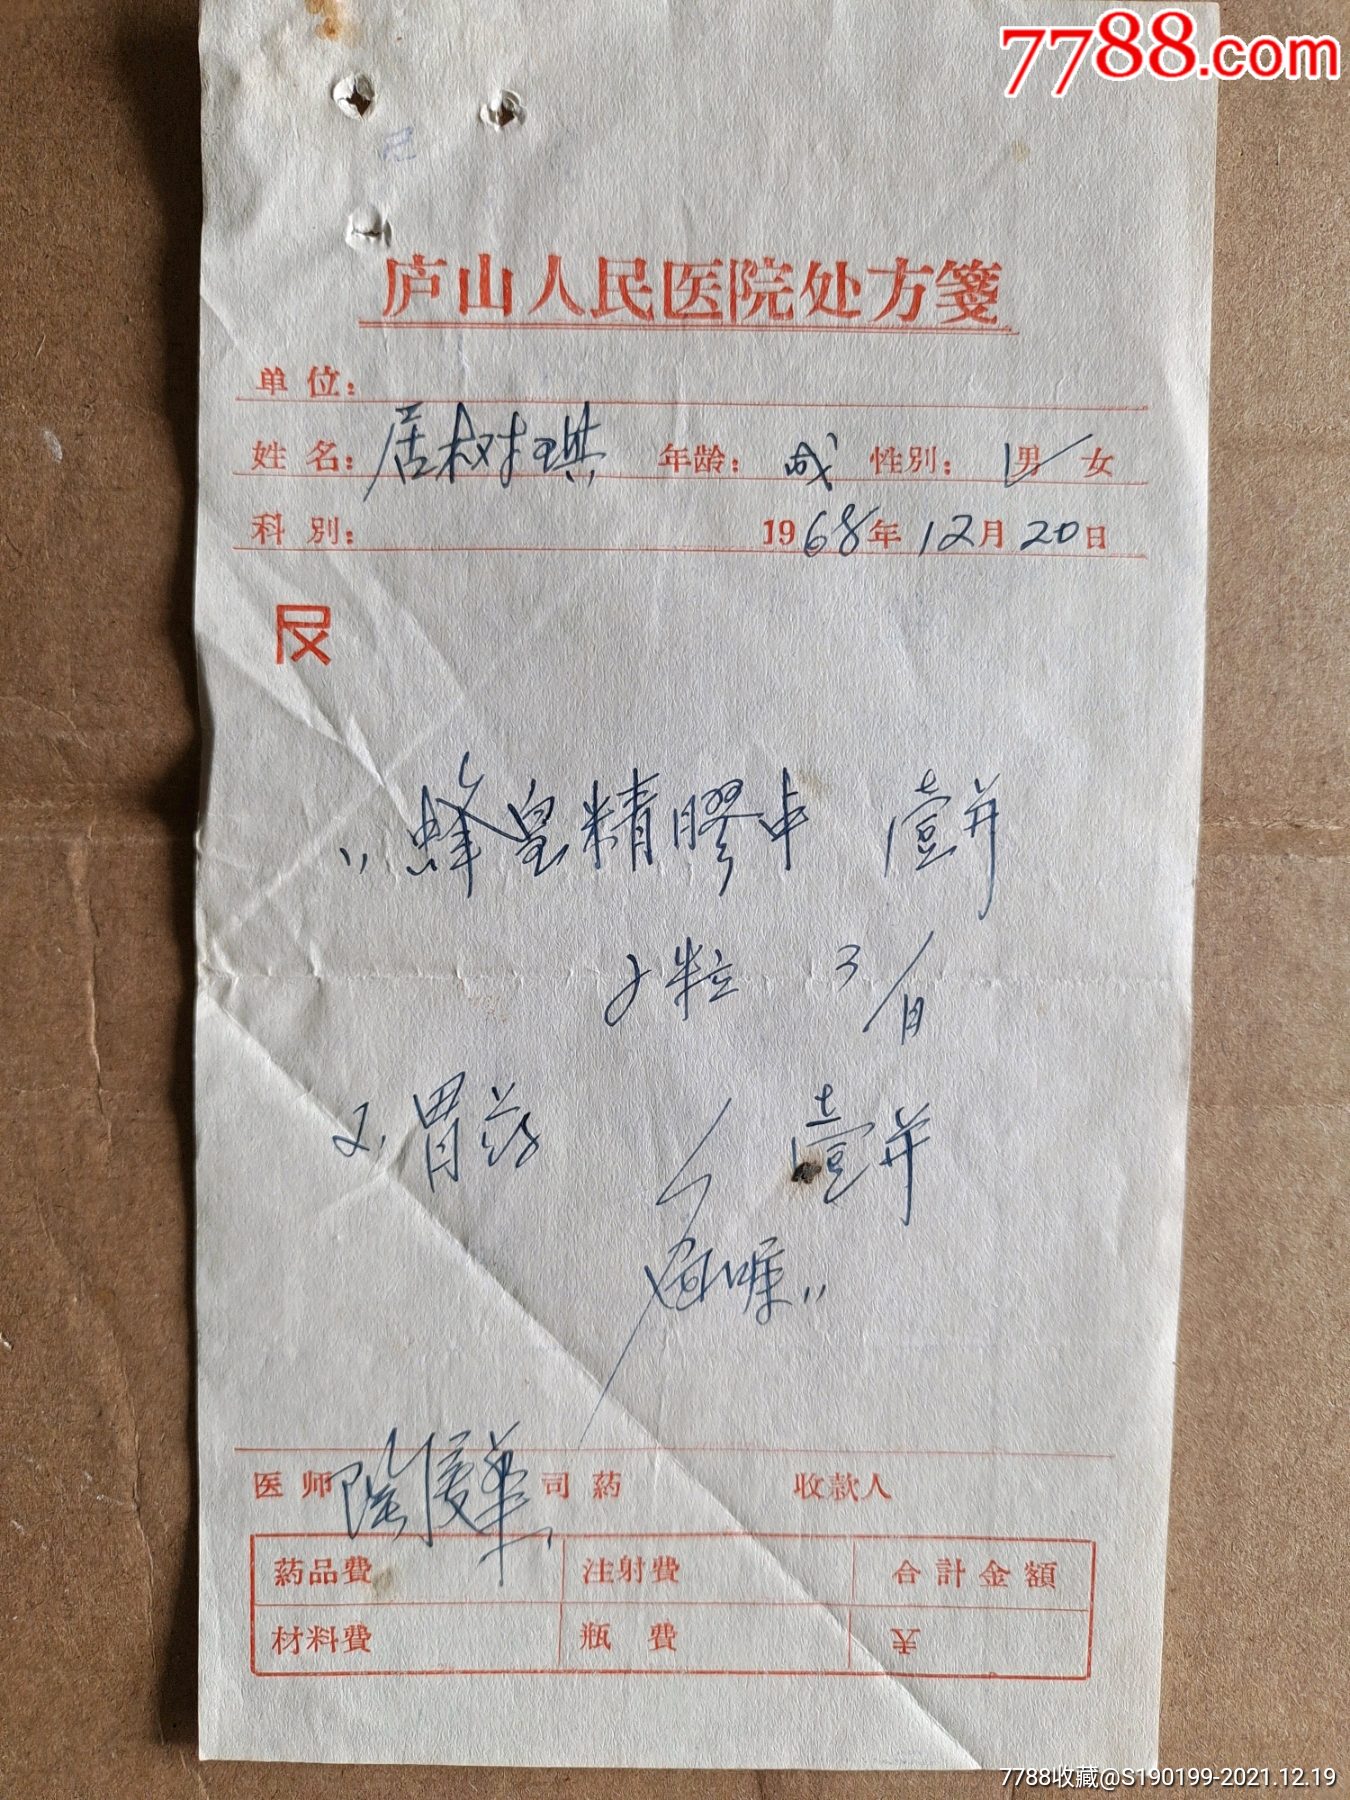 7788.com
庐山人民医院处方箋
单位：
姓名：居树琪 年龄：成 性别：男 女
科别： 1968年12月20日
1. 蜂皇精膠 壹并
2粒 3/日
2. 胃药 壹并
医师 司药 收款人
药品費 注射費 合計金額
材料費 瓶費 ¥
7788收藏@S190199-2021.12.19